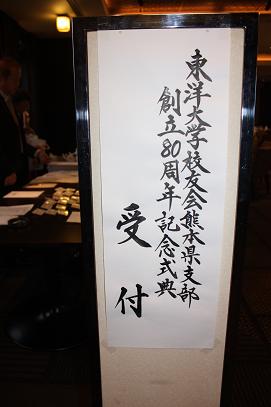 東洋大学校友会熊本県支部
創立80周年記念式典
受付